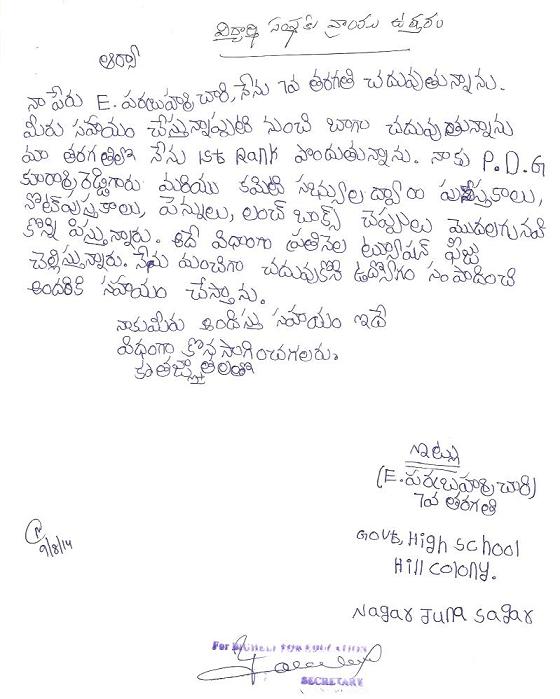 విద్యార్థి సంస్థకు వ్రాయు ఉత్తరం
ఆర్యా
నా పేరు E. పరబ్రహ్మచారి, నేను 7వ తరగతి చదువుతున్నాను.
మీరు సహాయం చేస్తున్నప్పటి నుంచి బాగా చదువుతున్నాను
మా తరగతిలో నేను 1st Rank పొందుతున్నాను. నాకు P.D.G
రెడ్డిగారు మరియు కమిటి సభ్యుల ద్వారా పుస్తకాలు,
నోట్‌పుస్తకాలు, పెన్నులు, లంచ్ బాక్స్ చెప్పులు మొదలగునవి
కొన్ని పిస్తున్నారు. అదే విధంగా ప్రతినెల ట్యూషన్ ఫీజు
చెల్లిస్తున్నారు. నేను మంచిగా చదువుకొని ఉద్యోగం సంపాదించి
అందరికి సహాయం చేస్తాను.
నాకు మీరు అందిస్తు సహాయం ఇదే
విధంగా కొనసాగించగలరు.
కృతజ్ఞతలతో
ఇట్లు
(E. పరబ్రహ్మచారి)
7వ తరగతి
Govt. High school
Hill colony.
Nagar Juna Sagar
9/8/14
For
SECRETARY